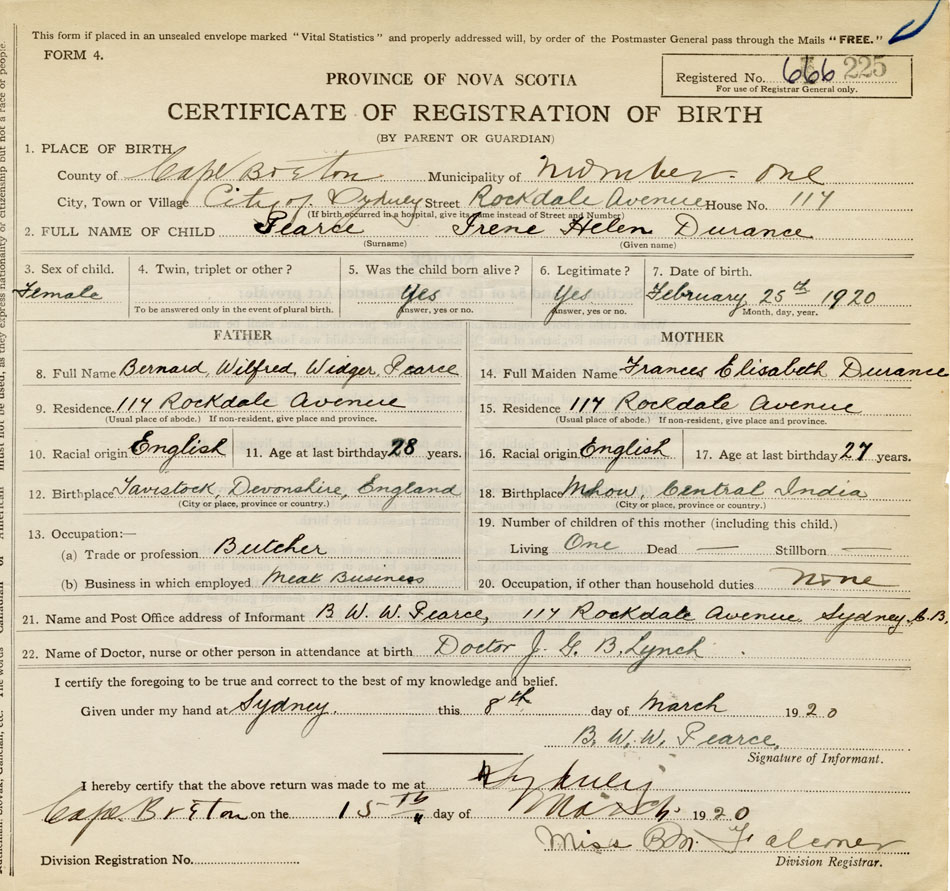 This form if placed in an unsealed envelope marked "Vital Statistics" and properly addressed will, by order of the Postmaster General pass through the Mails "FREE."
FORM 4.
PROVINCE OF NOVA SCOTIA
Registered No. 666 225
For use of Registrar General only.
CERTIFICATE OF REGISTRATION OF BIRTH
(BY PARENT OR GUARDIAN)
1. PLACE OF BIRTH
County of Cape Breton Municipality of Number One
City, Town or Village City of Sydney Street Rockdale Avenue House No. 117
(If birth occurred in a hospital, give its name instead of Street and Number)
2. FULL NAME OF CHILD Pearce Irene Helen Durance
(Surname) (Given name)
3. Sex of child. 4. Twin, triplet or other? 5. Was the child born alive? 6. Legitimate? 7. Date of birth.
Female Yes Yes February 25th 1920
To be answered only in the event of plural birth. Answer, yes or no. Answer, yes or no. Month, day, year.
FATHER MOTHER
8. Full Name Bernard, Wilfred, Widger, Pearce 14. Full Maiden Name Frances Elisabeth Durance
9. Residence. 117 Rockdale Avenue 15. Residence 117 Rockdale Avenue
(Usual place of abode.) If non-resident, give place and province. (Usual place of abode.) If non-resident, give place and province.
10. Racial origin English 11. Age at last birthday 28 years. 16. Racial origin English 17. Age at last birthday 27 years.
12. Birthplace Tavistock, Devonshire, England 18. Birthplace Mhow, Central India
(City or place, province or country.) (City or place, province or country.)
13. Occupation:— 19. Number of children of this mother (including this child.)
(a) Trade or profession Butcher Living One Dead — Stillborn —
(b) Business in which employed Meat Business 20. Occupation, if other than household duties None
21. Name and Post Office address of Informant B. W. W. Pearce, 117 Rockdale Avenue, Sydney, C.B.
22. Name of Doctor, nurse or other person in attendance at birth Doctor J. G. B. Lynch
I certify the foregoing to be true and correct to the best of my knowledge and belief.
Given under my hand at Sydney. this 8th day of March 1920
B. W. W. Pearce,
Signature of Informant.
I hereby certify that the above return was made to me at Sydney
Cape Breton on the 15th day of March 1920
Miss B.M. Falconer
Division Registration No. Division Registrar.